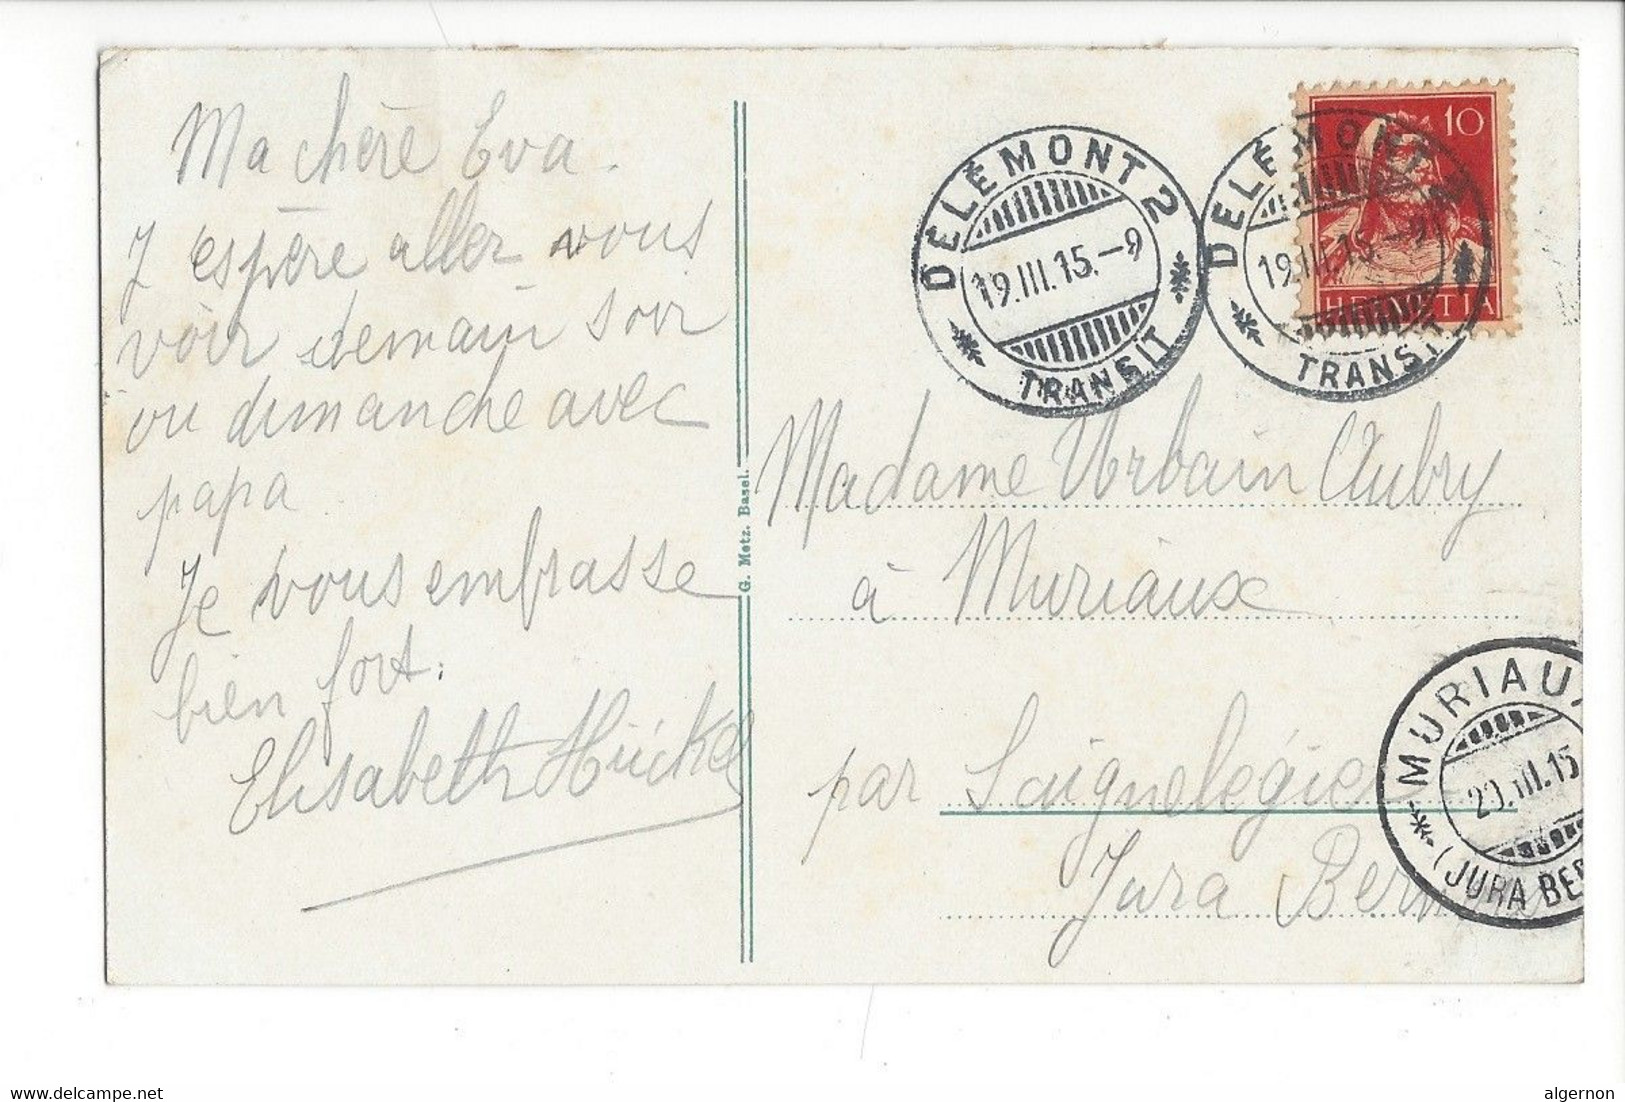 Ma chère Eva.
J'espère aller vous
voir demain soir
ou dimanche avec
papa
Je vous embrasse
bien fort.
Elisabeth
G. Metz. Basel.
DELÉMONT 2
19.III.15.-9
TRANSIT
DELÉMONT 2
19.III.15.-9
TRANSIT
10
HELVETIA
Madame Urbain Aubry
à Muriaux
par Saignelégier
Jura Bernois
MURIAUX
20.III.15
(JURA BER
algernon